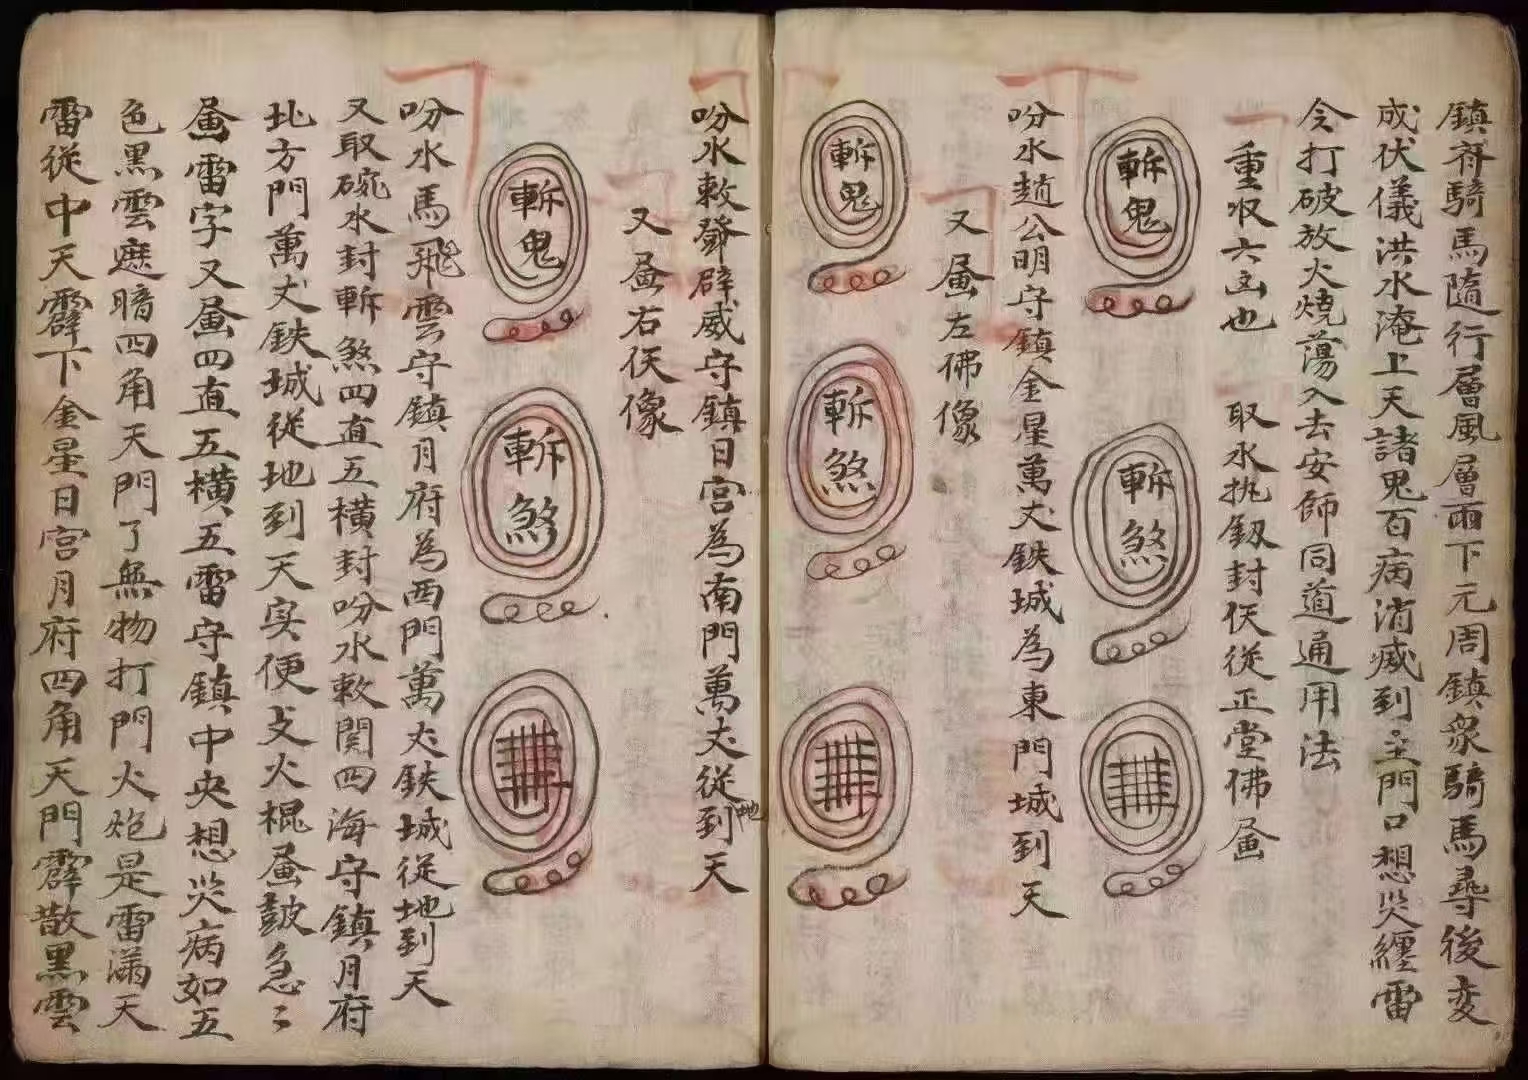 鎮符騎馬隨行層風層雨下元周鎮眾騎馬尋後变
成伏儀洪水淹上天諸鬼百病消威到主門口想災纏雷
令打破放火燒蕩入去安師同道通用法
重収六凶也 取水执釰封伕從正堂佛畐
斬鬼
斬煞
吩水趙公明守鎮金星萬丈鉄城為東門城到天
又畐左佛像
斬鬼
斬煞
吩水敕鄧辟威守鎮日宮為南門萬丈從地到天
又畐右伕像
斬鬼
斬煞
吩水馬飛雲守鎮月府為西門萬丈鉄城從地到天
又取碗水封斬煞四直五横封吩水敕関四海守鎮月府
北方門萬丈鉄城從地到天实便火棍畐皷急〻
畐雷字又畐四直五横五雷守鎮中央想災病如五
色黑雲遮暗四角天門了無物打門火炮是雷滿天
雷從中天霹下金星日宮月府四角天門霹散黑雲